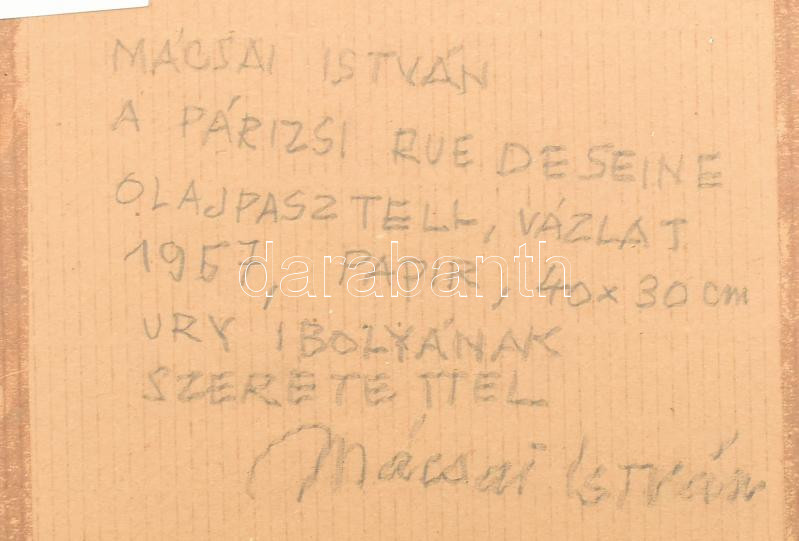 MÁCSAI ISTVÁN
A PÁRIZSI RUE DE SEINE
OLAJPASZTELL, VÁZLAT
1957, PAPIR, 40x30 cm
darabanth
URY IBOLYÁNAK
SZERETETTEL
Mácsai István